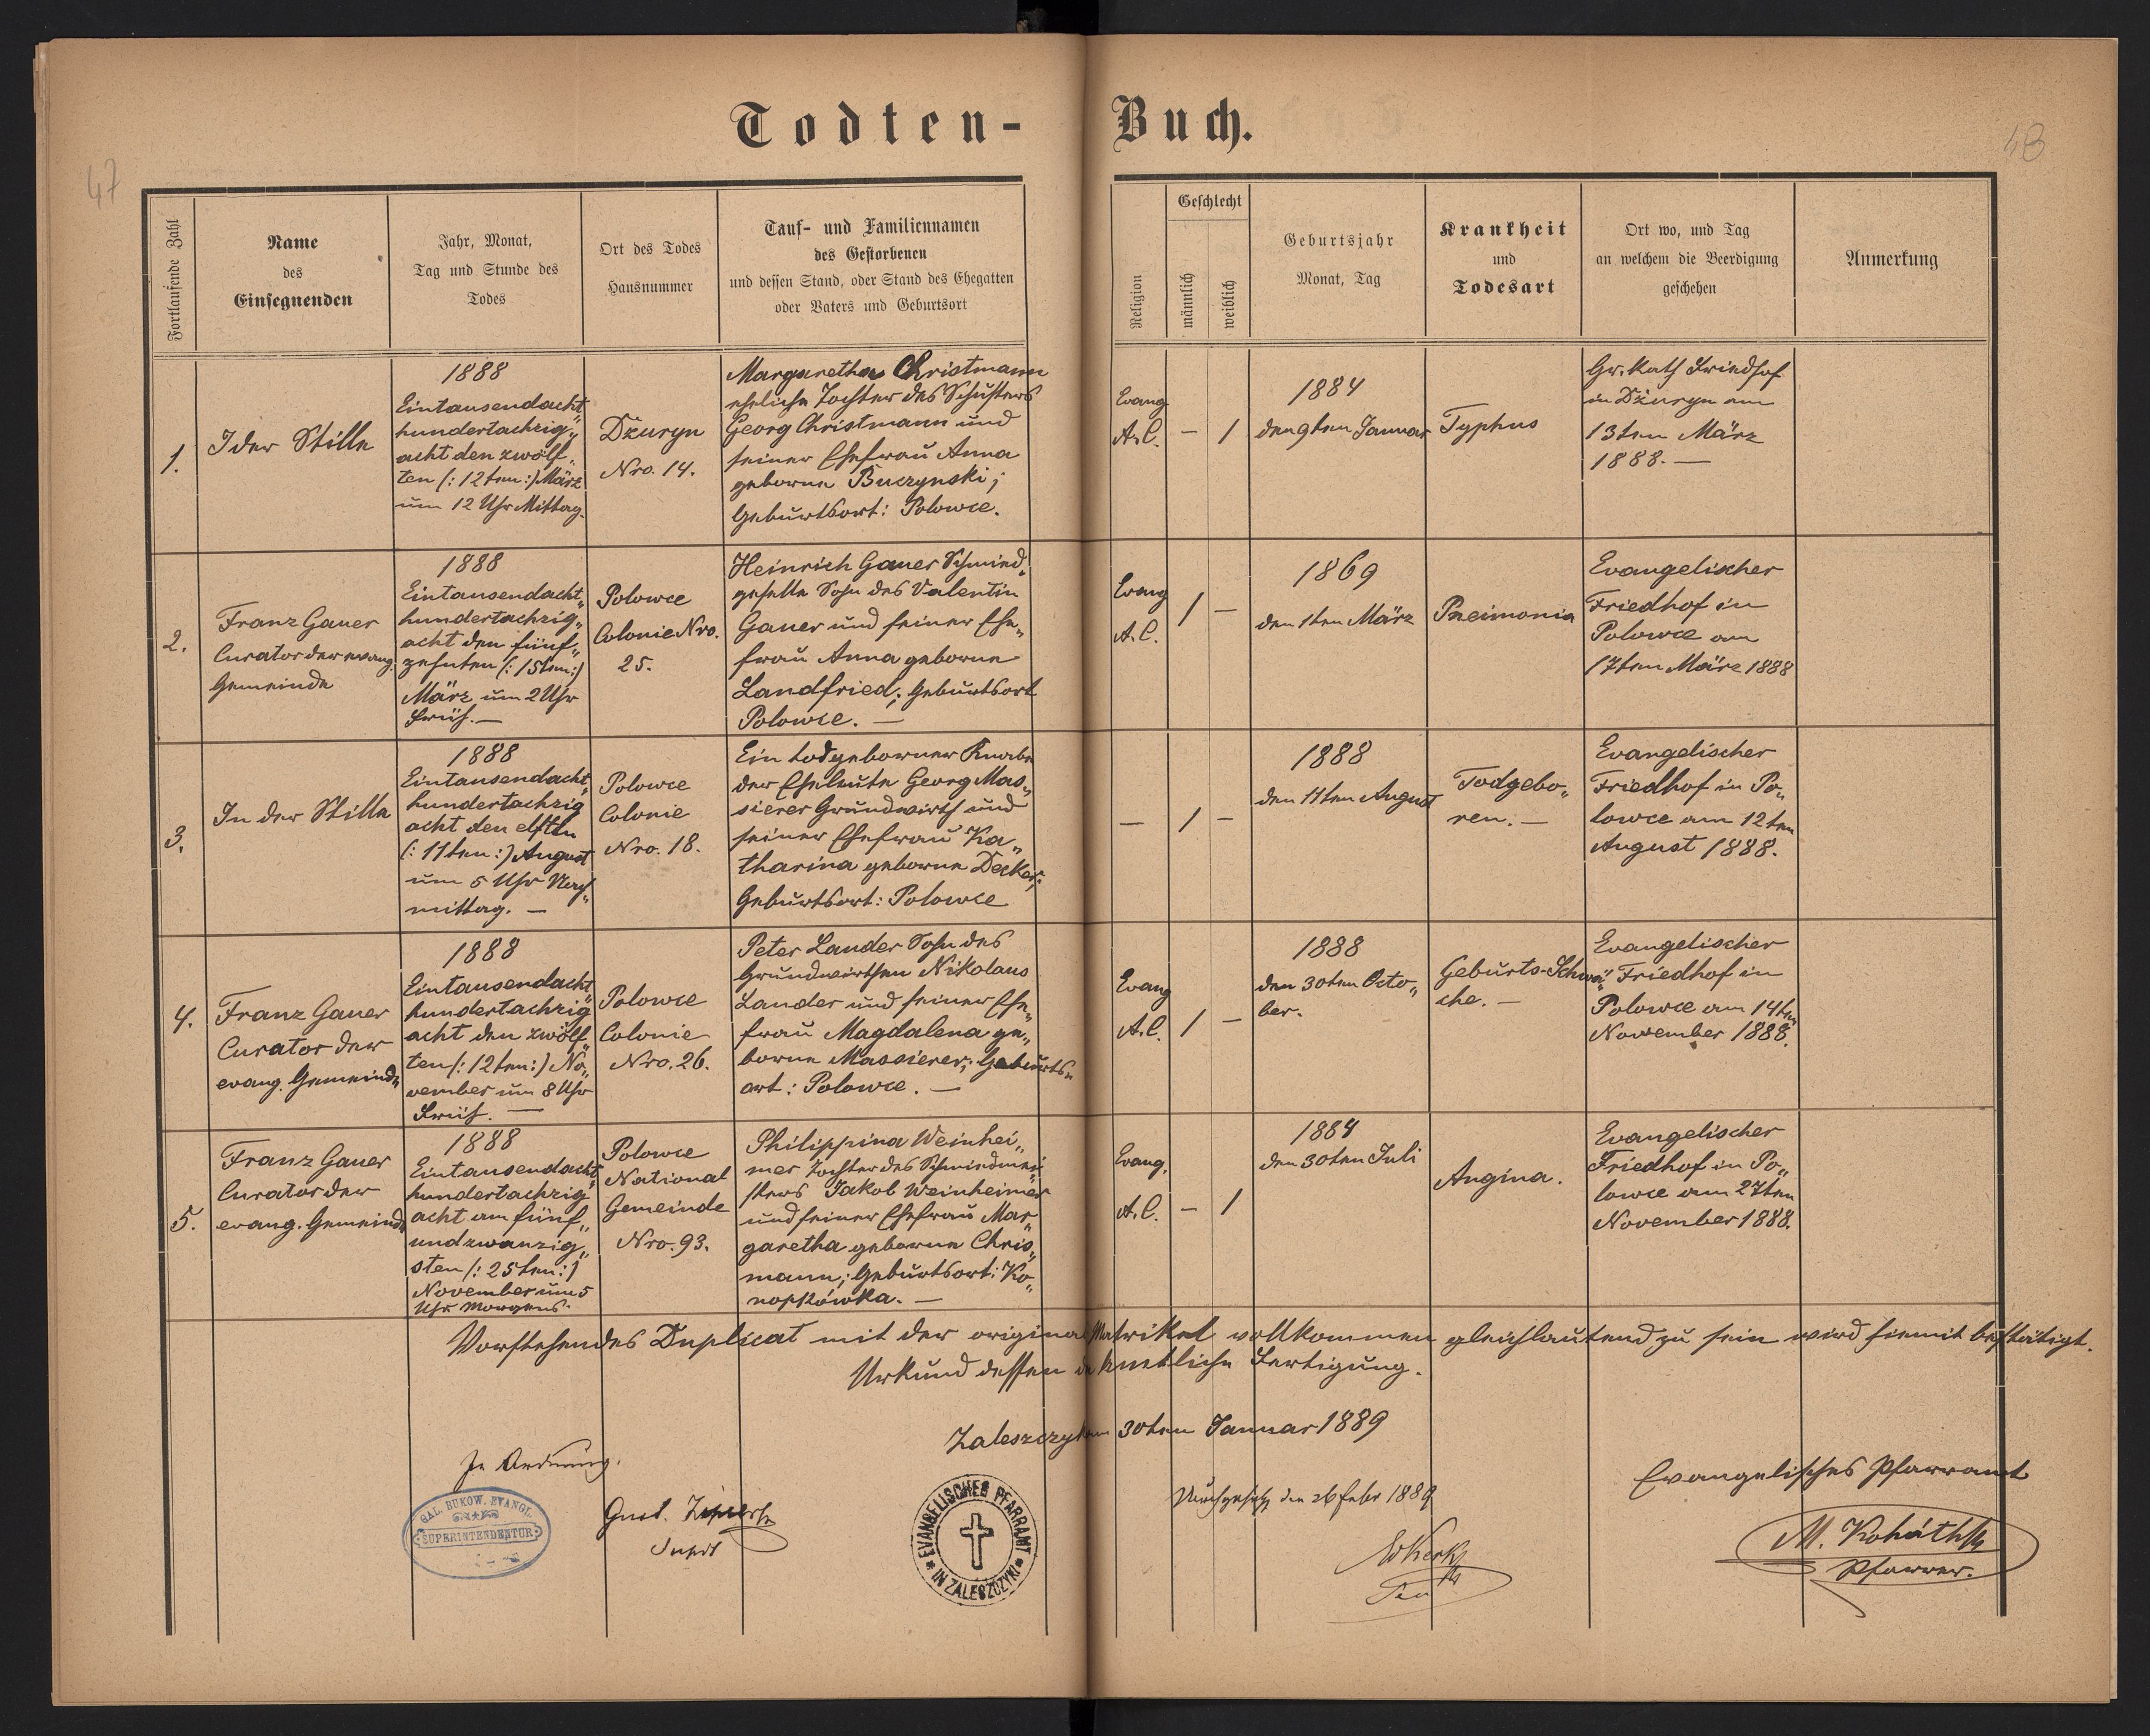 47
Todten-Buch.
48
Fortlaufende Zahl
Name
des
Einsegnenden
Jahr, Monat,
Tag und Stunde des
Todes
Ort des Todes
Hausnummer
Tauf- und Familiennamen
des Gestorbenen
und dessen Stand, oder Stand des Ehegatten
oder Vaters und Geburtsort
Religion
Geschlecht
männlich
weiblich
Geburtsjahr
Monat, Tag
Krankheit
und
Todesart
Ort wo, und Tag
an welchem die Beerdigung
geschehen
Anmerkung
1.
I der Stille
1888
Eintausendacht„
hundertachzig„
acht den zwölf„
ten (: 12ten :) März
um 12 Uhr Mittag.
Dżuryn
Nro. 14.
Margaretha Christmann
eheliche Tochter des Schusters
Georg Christmann und
seiner Ehefrau Anna
geborne Buczynski;
Geburtsort: Polowce.
Evang
A.C.
— 1
1884
den 9ten Januar
Typhus
Gr. Kath Friedhof
in Dżuryn am
13ten März
1888. —
2.
Franz Gauer
Curator der evang.
Gemeinde
1888
Eintausendacht„
hundertachzig„
acht den fünf„
zehnten (: 15ten :)
März um 2 Uhr
Früh. —
Polowce
Colonie Nro.
25.
Heinrich Gauer Schmied„
geselle Sohn des Valentin
Gauer und seiner Ehe„
frau Anna geborne
Landfried; Geburtsort
Polowce. —
Evang
A.C.
1 —
1869
den 1ten März
Pneimonia
Evangelischer
Friedhof in
Polowce am
17ten März 1888
3.
In der Stille
1888
Eintausendacht„
hundertachzig
acht den elften
(: 11ten :) August
um 5 Uhr Nach„
mittag. —
Polowce
Colonie
Nro. 18.
Ein todgeborner Knabe
der Eheleute Georg Mas„
sierer Grundwirth und
seiner Ehefrau Ka„
tharina geborne Decker;
Geburtsort: Polowce
— 1 —
1888
den 11ten August
Todgebo„
ren. —
Evangelischer
Friedhof in Po„
lowce am 12ten
August 1888.
4.
Franz Gauer
Curator der
evang. Gemeinde
1888
Eintausendacht„
hundertachzig
acht den zwölf„
ten (: 12ten :) No„
vember um 8 Uhr
Früh. —
Polowce
Colonie
Nro. 26.
Peter Lander Sohn des
Grundwirthen Nikolaus
Lander und seiner Ehe„
frau Magdalena ge„
borne Massierer; Geburts„
ort: Polowce. —
Evang
A.C.
1 —
1888
den 30ten Octo„
ber.
Geburts-Schwä„
che. —
Evangelischer
Friedhof in
Polowce am 14ten
November 1888.
5.
Franz Gauer
Curator der
evang. Gemeinde
1888
Eintausendacht„
hundertachzig
acht am fünf„
und zwanzig„
sten (: 25ten :)
November um 5
Uhr Morgens.
Polowce
National
Gemeinde
Nro. 93.
Philippina Weinhei„
mer Tochter des Schmiedmei„
sters Jakob Weinheimer
und seiner Ehefrau Mar„
garetha geborne Chris„
mann; Geburtsort: Ko„
nopkówka. —
Evang.
A.C.
— 1
1884
den 30ten Juli
Angina.
Evangelischer
Friedhof in Po„
lowce am 27ten
November 1888.
Vorstehendes Duplicat mit der original Matrikel vollkommen gleichlautend zu sein wird hiemit bestätigt.
Urkund dessen amtliche Fertigung.
Zaleszczyki am 30ten Januar 1889
In Ordnung.
GAL. BUKOW. EVANGL. SUPERINTENDENTUR
Gust.
Supdt
EVANGELISCHES PFARRAMT IN ZALESZCZYKI
den 26 Febr 1889
Sen
Evangelisches Pfarramt
M. Koháth
Pfarrer.